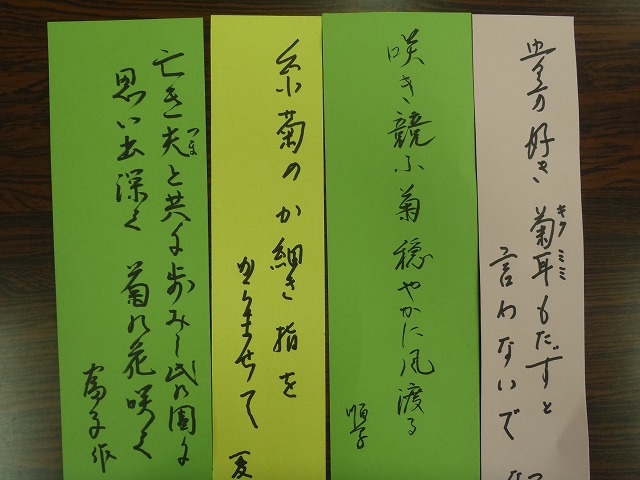 貴方好き 菊耳もたずと
キク ミミ
言わないで
咲き競ふ菊穏やかに風渡る
順子
糸菊のか細き指を
からませて
亡き夫と共に歩みし此の園に
つま
思い出深く 菊の花咲く
富子作